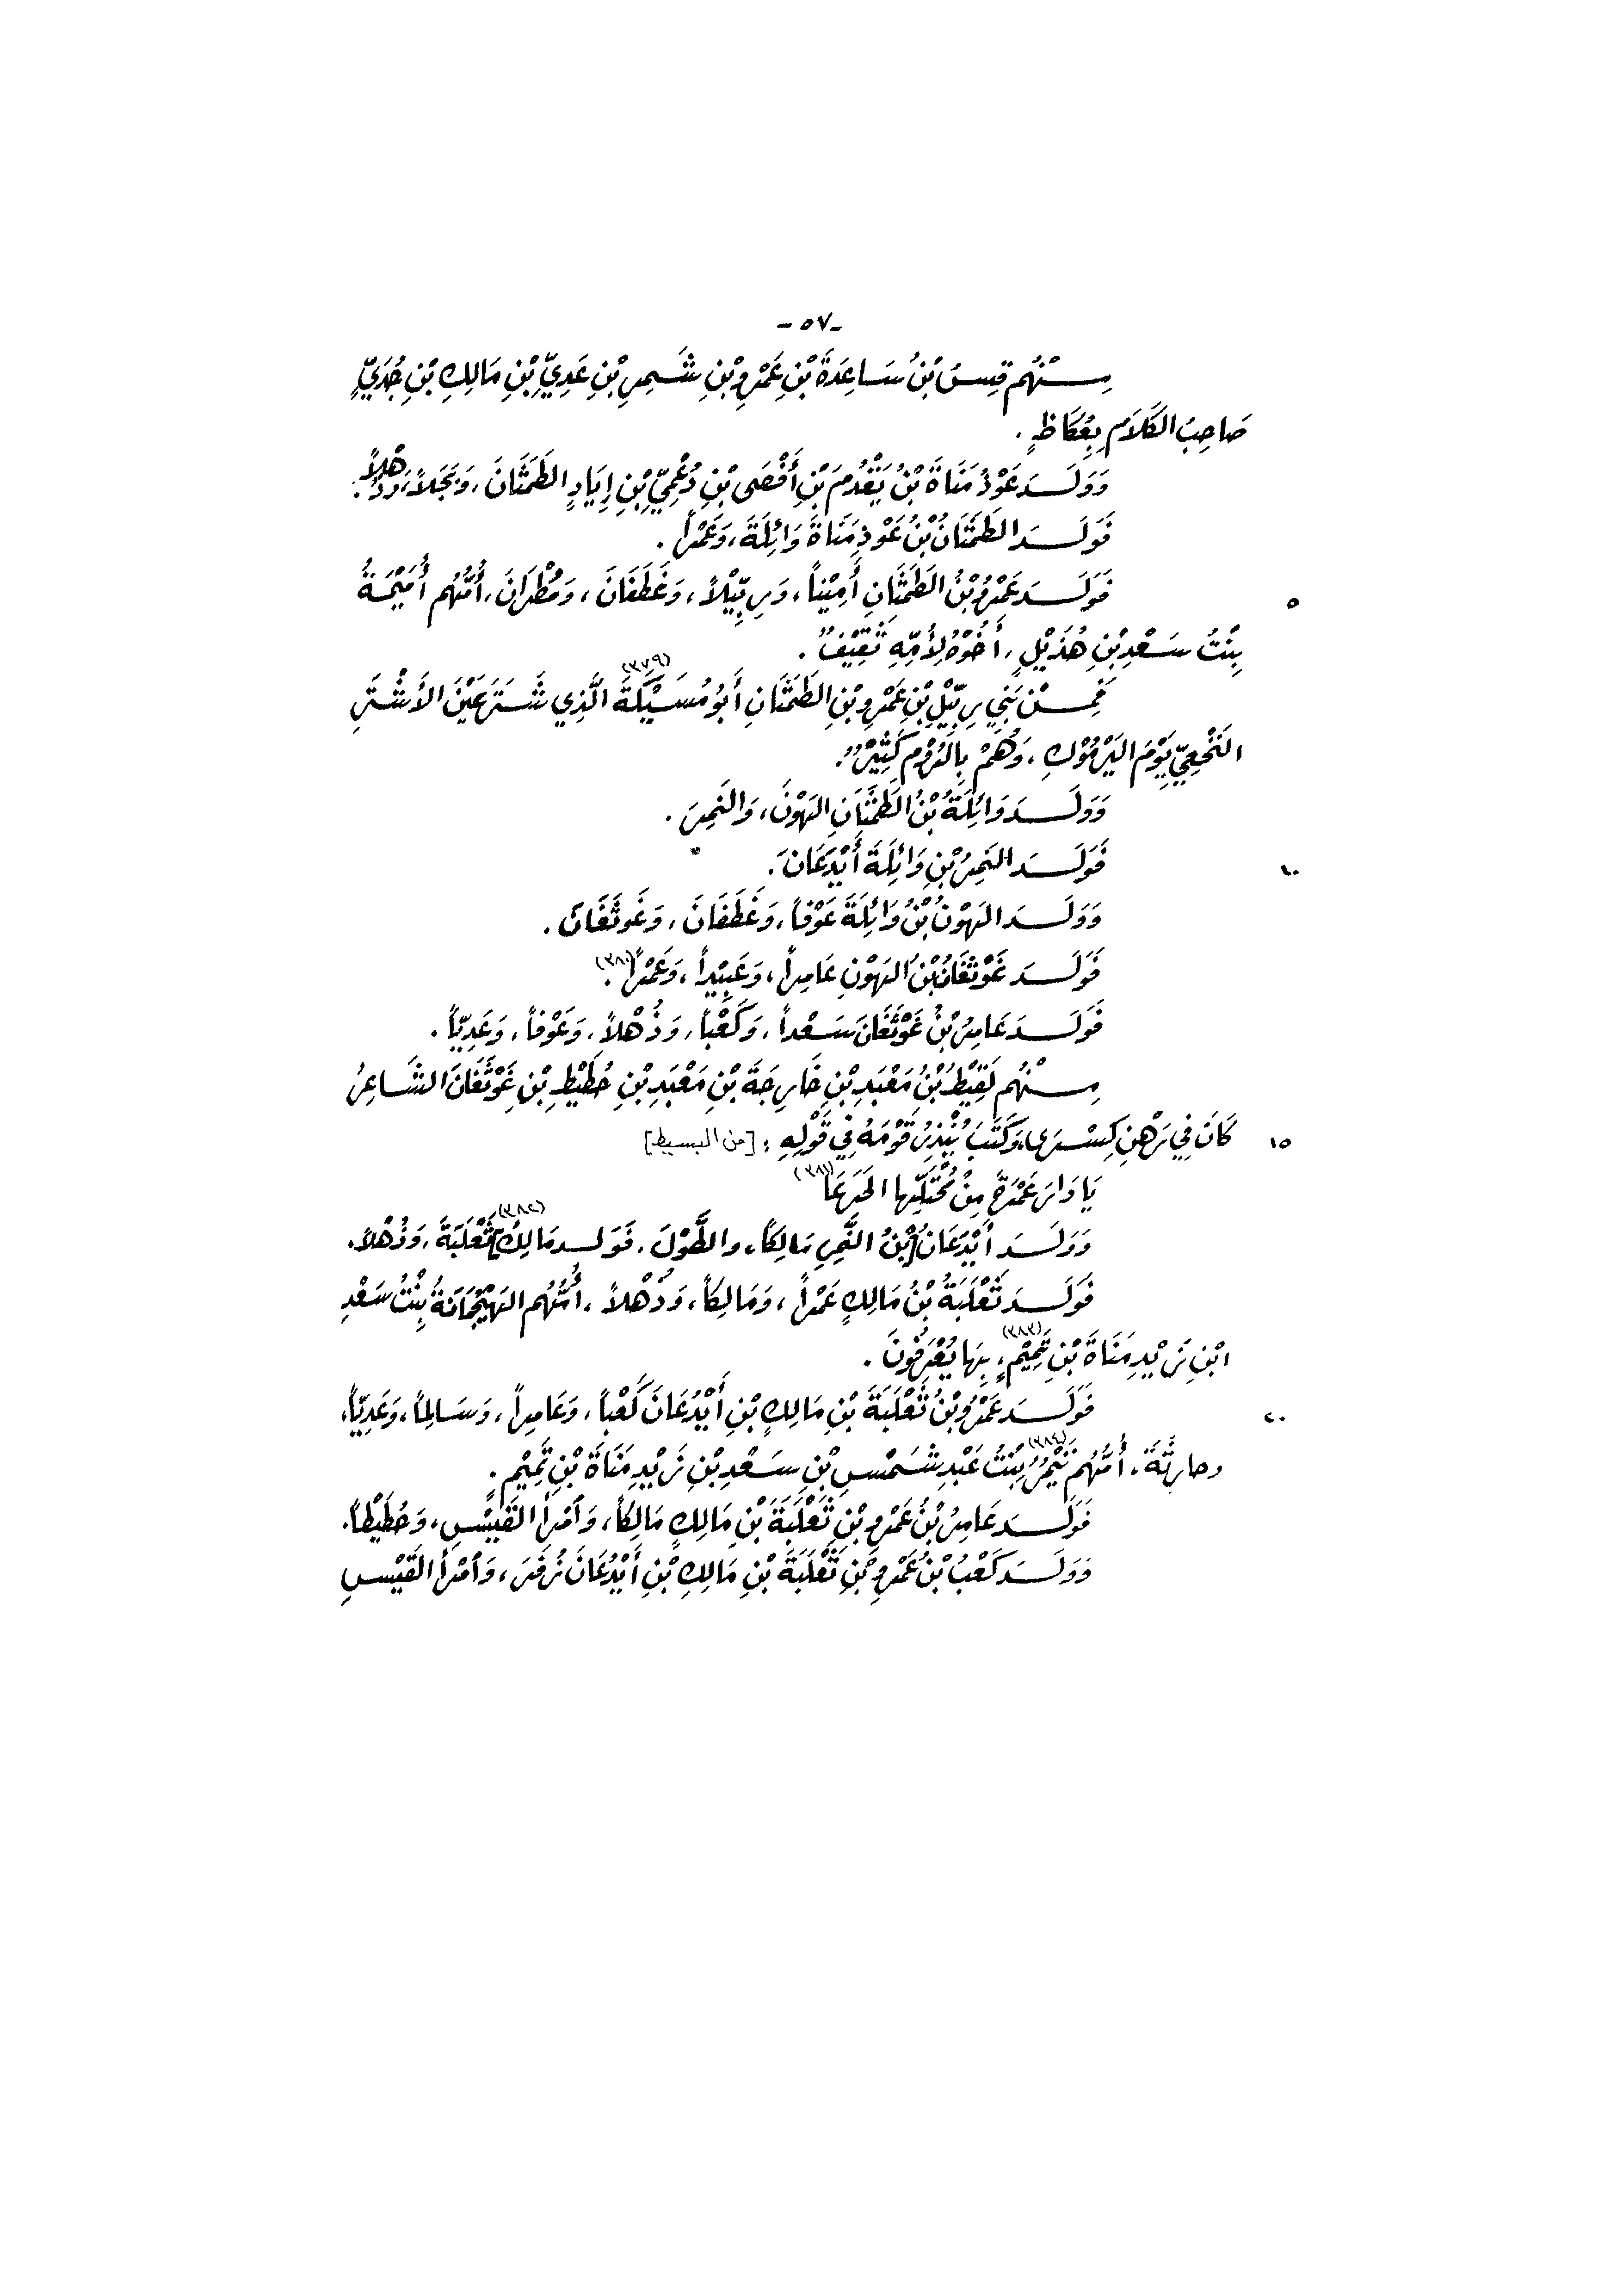 -٥٧-
مِنْهُم قِيسُ بْنُ سَاعِدَةَ بْنِ عَمْرِو بْنِ شَمِرِ بْنِ عَدِيِّ بْنِ مَالِكِ بْنِ جُدَيٍّ
صَاحِبُ الكَلاَمِ بِعُكَاظٍ .
وَوَلَـدَ عَوْذُ مَنَاةَ بْنُ يَقْدُمَ بْنِ أَفْصَى بْنِ دُعْمِيِّ بْنِ إِيَادٍ الطَّمَثَانَ ، وَبَجَلاً ، وَذُهْلاً .
فَوَلَـدَ الطَّمَثَانُ بْنُ عَوْذِ مَنَاةَ وَائِلَةَ ، وَعَمْراً .
فَوَلَـدَ عَمْرُو بْنُ الطَّمَثَانِ أَمِيْناً ، وَرِبِّيْلاً ، وَغَطَفَانَ ، وَمُطْرَانَ ، أُمُّهُم أُمَيْمَةُ
٥
بِنْتُ سَعْدِ بْنِ هُذَيْلٍ ، أَخُوْهُ لِأُمِّهِ ثَقِيْفٌ .
فَمِـنْ بَنِي رِبِّيْلِ بْنِ عَمْرِو بْنِ الطَّمَثَانِ أَبُو مُسَيْكَةَ (٣٧٩) الَّذِي شَتَرَ عَيْنَ الأَشْتَرِ
النَّخَعِيِّ يَوْمَ اليَرْمُوْكِ ، وَهُمْ بِالرُّوْمِ كَثِيْرٌ .
وَوَلَـدَ وَائِلَةُ بْنُ الطَّمَثَانِ الهَوْنَ ، وَالنَّمِرَ .
فَوَلَـدَ النَّمِرُ بْنِ وَائِلَةَ أَيْدَعَانَ .
١٠
وَوَلَـدَ الهَوْنُ بْنُ وَائِلَةَ عَوْفاً ، وَغَطَفَانَ ، وَغَوثَغَانَ .
فَوَلَـدَ غَوْثَغَانُ بْنُ الهَوْنِ عَامِراً ، وَعَبِيْداً ، وَعَمْراً (٣٨٠) .
فَوَلَـدَ عَامِرُ بْنُ غَوْثَغَانَ سَعْداً ، وَكَعْباً ، وَذُهْلاً ، وَعَوْفاً ، وَعَدِيّاً .
مِـنْهُم لَقِيْطُ بْنُ مَعْبَدِ بْنِ خَارِجَةَ بْنِ مَعْبَدِ بْنِ حُطَيْطِ بْنِ غَوْثَغَانَ الشَّاعِرُ
كَانَ فِي رَهْنِ كِسْرَى ، وَكَتَبَ يُنْذِرُ قَوْمَهُ فِي قَوْلِهِ : [من البسيط]
١٥
يَا دَارَ عَمْرَةَ مِنْ مُحْتَلِّها الجَرَعَا (٣٨١)
وَوَلَـدَ أَيْدَعَانُ [بْنُ النَّمِرِ مَالِكاً ، والطَّوْلَ ، فَوَلـد مَالِكُ] (٣٨٢) ثَعْلَبَةَ ، وَذُهْلاً .
فَوَلَـدَ ثَعْلَبَةُ بْنُ مَالِكٍ عَمْراً ، وَمَالِكاً ، وَذُهْلاً ، أُمُّهُم الهَيْجُمَانَةُ بِنْتُ سَعْدِ
ابْنِ زَيْدِ مَنَاةَ بْنِ تَمِيْمٍ (٣٨٣) ، بِهَا يُعْرَفُونَ .
فَوَلَـدَ عَمْرُو بْنُ ثَعْلَبَةَ بْنِ مَالِكِ بْنِ أَيْدُعَانَ كَعْباً ، وَعَامِراً ، وَسَالِماً ، وَعَدِيّاً ،
٢٠
وحارِثَةَ ، أُمُّهُم (٣٨٤) بِنْتُ عَبْدِ شَمْسِ بْنِ سَعْدِ بْنِ زَيْدِ مَنَاةَ بْنِ تَمِيْمٍ .
فَوَلَـدَ عَامِرُ بْنُ عَمْرِو بْنِ ثَعْلَبَةَ بْنِ مَالِكٍ مَالِكاً ، وَامْرَأَ القَيْسِ ، وَحُطَيْطاً .
وَوَلَـدَ كَعْبُ بْنُ عَمْرِو بْنِ ثَعْلَبَةَ بْنِ مَالِكِ بْنِ أَيْدُعَانَ زُفَرَ ، وَامْرَأَ القَيْسِ